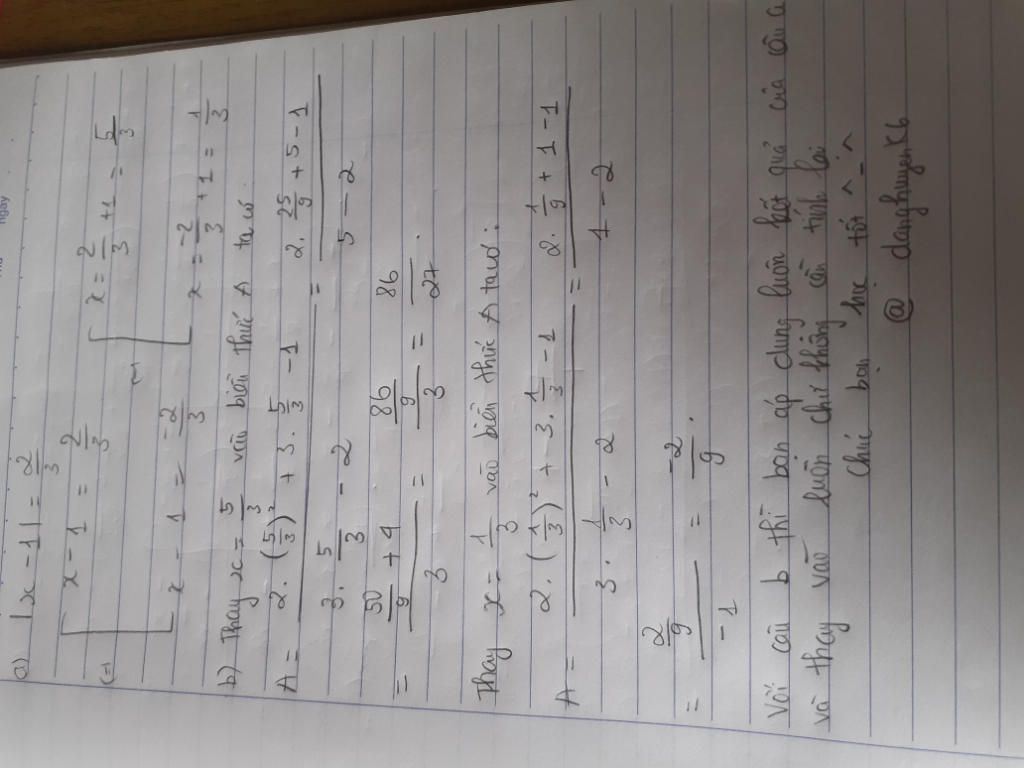 ngày
a) |x - 1| = 2/3
(=) [ x - 1 = 2/3 (=) [ x = 2/3 + 1 = 5/3
x - 1 = -2/3 x = -2/3 + 1 = 1/3
b) Thay x = 5/3 vào biểu thức A ta có
A = (2 . (5/3)² + 3 . 5/3 - 1)/(3 . 5/3 - 2) = (2 . 25/9 + 5 - 1)/(5 - 2)
= (50/9 + 4)/3 = (86/9)/3 = 86/27 .
Thay x = 1/3 vào biểu thức A ta có :
A = (2 . (1/3)² + 3 . 1/3 - 1)/(3 . 1/3 - 2) = (2 . 1/9 + 1 - 1)/(1 - 2)
= (2/9)/(-1) = -2/9 .
Với câu b thì bạn áp dụng luôn kết quả của câu a
và thay vào luôn chứ không cần tính lại
Chúc bạn học tốt ^_^
@ danghuyenk6